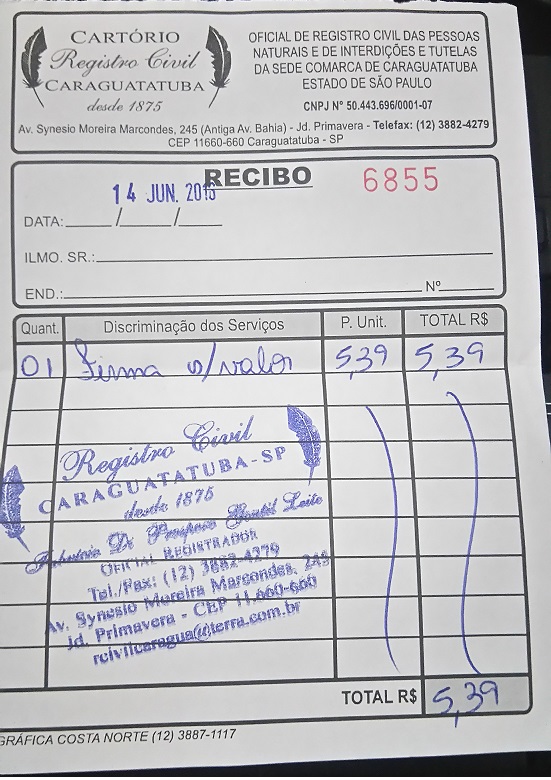 CARTÓRIO
Registro Civil
CARAGUATATUBA
desde 1875
OFICIAL DE REGISTRO CIVIL DAS PESSOAS
NATURAIS E DE INTERDIÇÕES E TUTELAS
DA SEDE COMARCA DE CARAGUATATUBA
ESTADO DE SÃO PAULO
CNPJ Nº 50.443.696/0001-07
Av. Synesio Moreira Marcondes, 245 (Antiga Av. Bahia) - Jd. Primavera - Telefax: (12) 3882-4279
CEP 11660-660 Caraguatatuba - SP
RECIBO
6855
14 JUN. 2018
DATA:____/____/____
ILMO. SR.:
END.: Nº
Quant. Discriminação dos Serviços P. Unit. TOTAL R$
01 Firma s/valor 5,39 5,39
Registro Civil
CARAGUATATUBA-SP
desde 1875
Di Prospero Gentil Leite
OFICIAL REGISTRADOR
Tel./Fax: (12) 3882-4279
Av. Synesio Moreira Marcondes, 245
Jd. Primavera - CEP 11.660-660
rcivilcaragua@terra.com.br
TOTAL R$ 5,39
GRÁFICA COSTA NORTE (12) 3887-1117